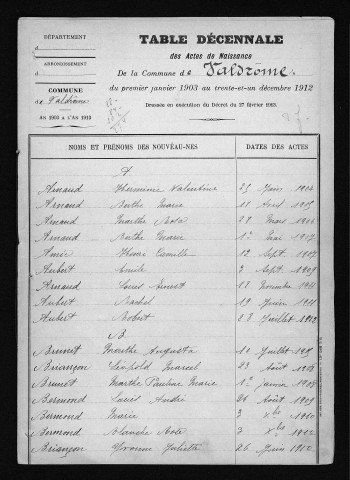 DÉPARTEMENT
d
ARRONDISSEMENT
d
COMMUNE
de Valdrôme
AN 1903 A L'AN 1913
TABLE DÉCENNALE
des Actes de Naissance
De la Commune de Valdrôme
du premier janvier 1903 au trente-et-un décembre 1912
Dressée en exécution du Décret du 17 février 1913.
NOMS ET PRÉNOMS DES NOUVEAU-NÉS DATES DES ACTES
A
Arnaud Herminie Valentine 25 1904
Arnaud Berthe Marie 11 Avril
Arnaud Marthe Rosa 27 Mars
Arnaud Berthe Marie 1er Mai 1907
Amic Henri Camille 12 Sept. 1907
Aubert Emile 3 Sept. 1909
Arnaud Louis Ernest 17 Novembre 1911
Aubert Rachel 19 Juin 1911
Aubert Robert 28 Juillet 1912
B
Brunet Marthe Augusta 10 Juillet
Briançon Léopold Marcel 23 Août
Brunet Marthe Pauline Marie 1er janvier
Bermond Louis André 26 Août 1909
Bermond Marie 3 Xbre 1910
Bermond Blanche Rose 3 Xbre 1910
Briançon Yvonne Juliette 26 Juin 1910